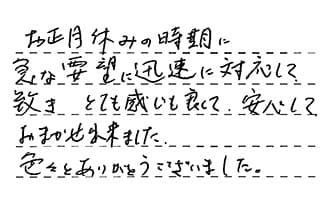 お正月休みの時期に
急な要望に迅速に対応して
戴き とても感じも良くて、安心して
おまかせ出来ました。
色々とありがとうございました。